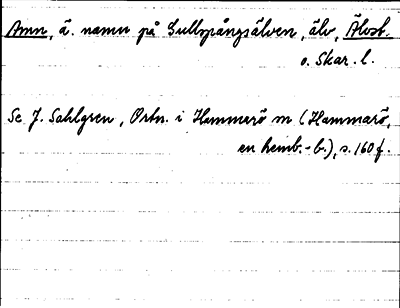 Amn, ä. namn på Gullspångsälven, älv, Älvsb.
o. Skar. l.
Se J. Sahlgren, Ortn. i Hammarö sn (Hammarö,
en hemb.-b.), s. 160 f.